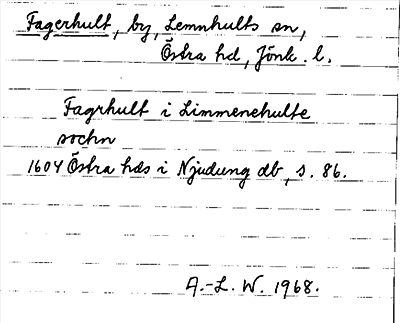 Fagerhult, by, Lemnhults sn,
Östra hd, Jönk. l.
Fagrhult i Limmenehulte
sochn
1604 Östra hds i Njudung db, s. 86.
A.-L. W. 1968.